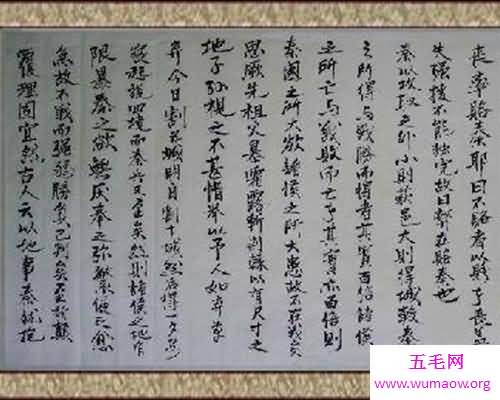 喪率賂秦耶曰不賂者以賂者喪盖
失強援不能獨完故曰弊在賂秦也
秦以攻取之外小則获邑大則得城較秦
之所得与戰勝而得者其實百倍諸侯
之所亡与戰敗而亡者其實亦百倍則
秦國之所大欲諸侯之所大患故不在战矣
思厥先祖父暴霜露斬荆棘以有尺寸之
地子孫視之不甚惜举以予人如弃草
芥今日割五城明日割十城然后得一夕安
寢起視四境而秦兵又至矣然則諸侯之地有
限暴秦之欲無厌奉之弥繁侵之愈
急故不戰而强弱勝負已判矣至於顛
覆理固宜然古人云以地事秦猶抱
五毛网
www.wumaow.org